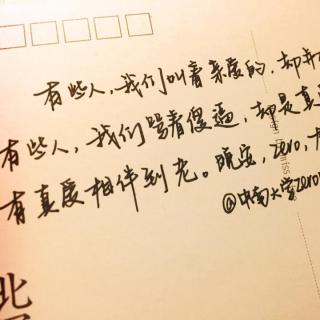 有些人,我们叫着亲爱的,却并
有些人,我们骂着傻逼,却是真
有真爱相伴到老。晚安,zero,
@中南大学zero
北